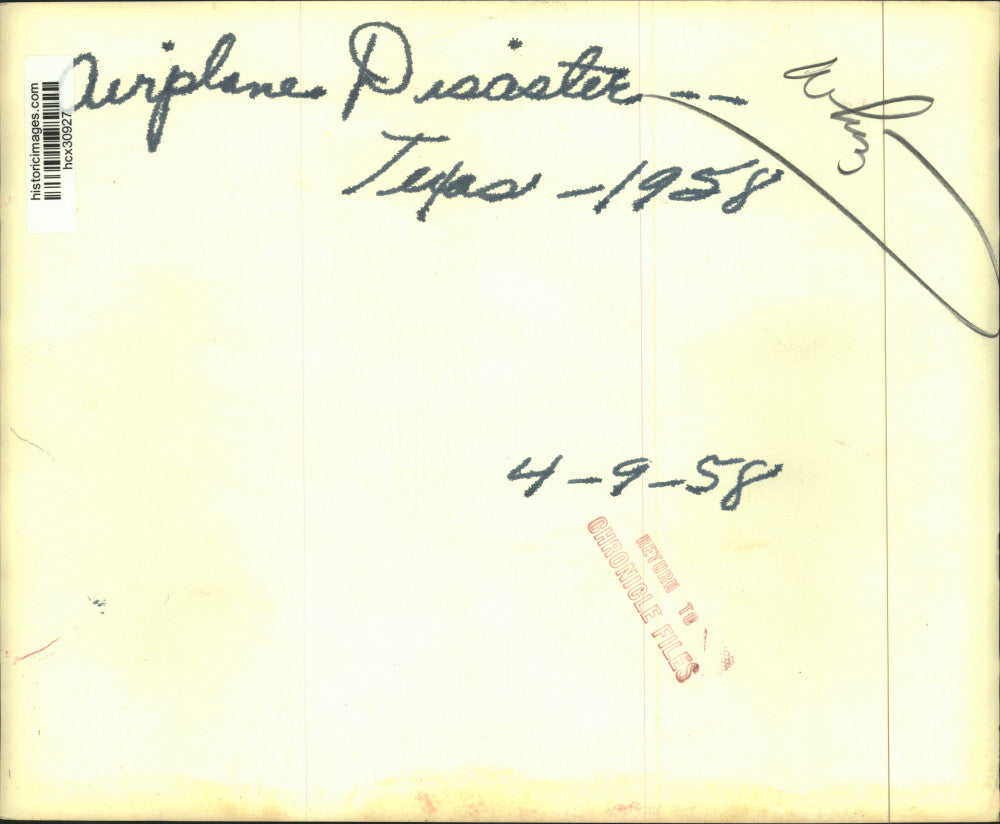 Airplane Disaster --
Texas - 1958
historicimages.com
hcx30927
4-9-58
RETURN TO
CHRONICLE FILES